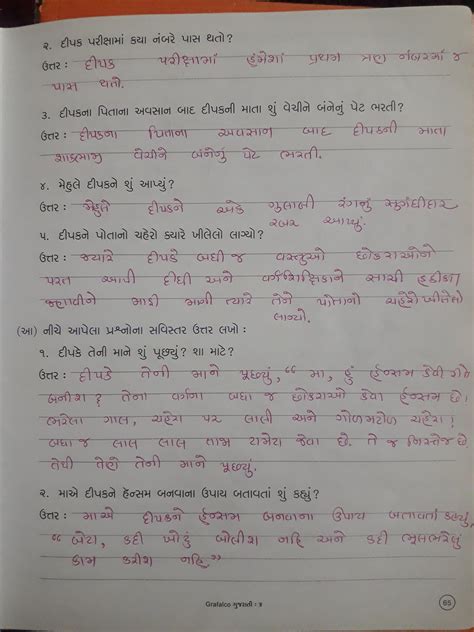 ૨. દીપક પરીક્ષામાં કયા નંબરે પાસ થતો?
ઉત્તર : દીપક પરીક્ષામાં હંમેશાં પ્રથમ ત્રણ નંબરમાં જ
પાસ થતો.
૩. દીપકના પિતાના અવસાન બાદ દીપકની માતા શું વેચીને બંનેનું પેટ ભરતી?
ઉત્તર : દીપકના પિતાના અવસાન બાદ દીપકની માતા
શાકભાજી વેચીને બંનેનું પેટ ભરતી.
૪. મેહુલે દીપકને શું આપ્યું?
ઉત્તર : મેહુલે દીપકને એક ગુલાબી રંગનું સુગંધીદાર
રબર આપ્યું.
૫. દીપકને પોતાનો ચહેરો ક્યારે ખીલેલો લાગ્યો?
ઉત્તર : જ્યારે દીપકે બધી જ વસ્તુઓ છોકરાઓને
પરત આપી દીધી અને વર્ગશિક્ષિકાને સાચી હકીકત
જણાવીને માફી માગી ત્યારે તેને પોતાનો ચહેરો ખીલેલો
લાગ્યો.
(આ) નીચે આપેલા પ્રશ્નોના સવિસ્તર ઉત્તર લખો :
૧. દીપકે તેની માને શું પૂછ્યું? શા માટે?
ઉત્તર : દીપકે તેની માને પૂછ્યું, “ મા, હું હેન્સમ કેવી રીતે
બનીશ? તેના વર્ગના બધા જ છોકરાઓ કેવા હેન્સમ છે!
ભરેલા ગાલ, ચહેરા પર લાલી અને ગોળમટોળ ચહેરા!
બધા જ લાલ લાલ તાજા ટામેટા જેવા છે. તે જ નિસ્તેજ છે
તેથી તેણે તેની માને પૂછ્યું.
૨. માએ દીપકને હેન્સમ બનવાના ઉપાય બતાવતાં શું કહ્યું?
ઉત્તર : માએ દીપકને હેન્સમ બનવાના ઉપાય બતાવતાં કહ્યું,
“ બેટા, કદી ખોટું બોલીશ નહિ અને કદી ભૂલભરેલું
કામ કરીશ નહિ.”
Grafalco ગુજરાતી : ૪
65